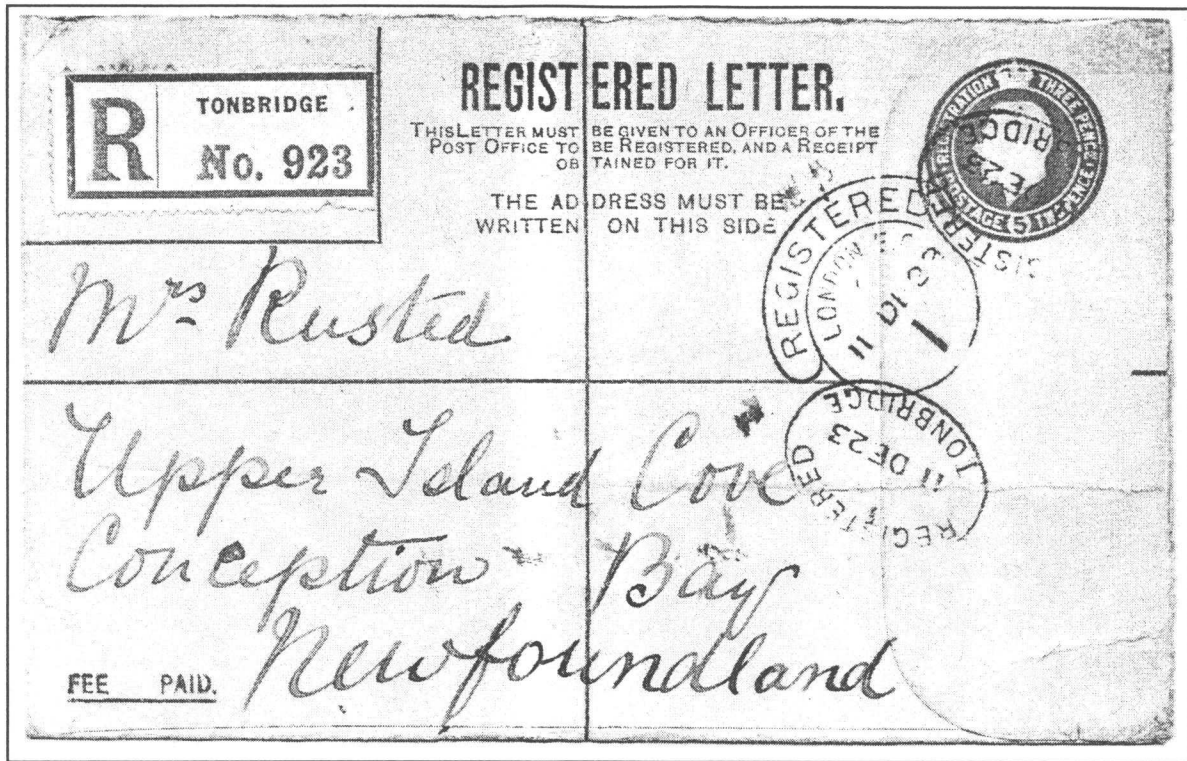 R
TONBRIDGE
No. 923
REGISTERED LETTER.
THIS LETTER MUST BE GIVEN TO AN OFFICER OF THE
POST OFFICE TO BE REGISTERED, AND A RECEIPT
OBTAINED FOR IT.
THE ADDRESS MUST BE
WRITTEN ON THIS SIDE
REGISTRATION THREE PENCE
POSTAGE
REGISTERED
LONDON
REGISTERED
11 DE 23
TONBRIDGE
Mrs Rusted
Upper Island Cove
Conception Bay
Newfoundland
FEE PAID.